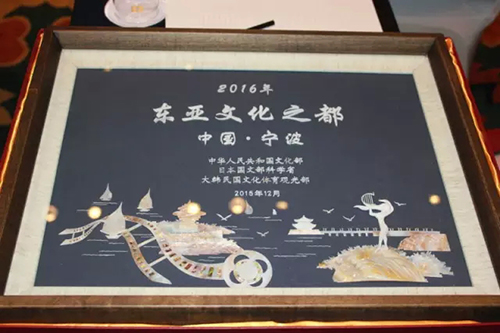 2016年
东亚文化之都
中国·宁波
中华人民共和国文化部
日本国文部科学省
大韩民国文化体育观光部
2015年12月